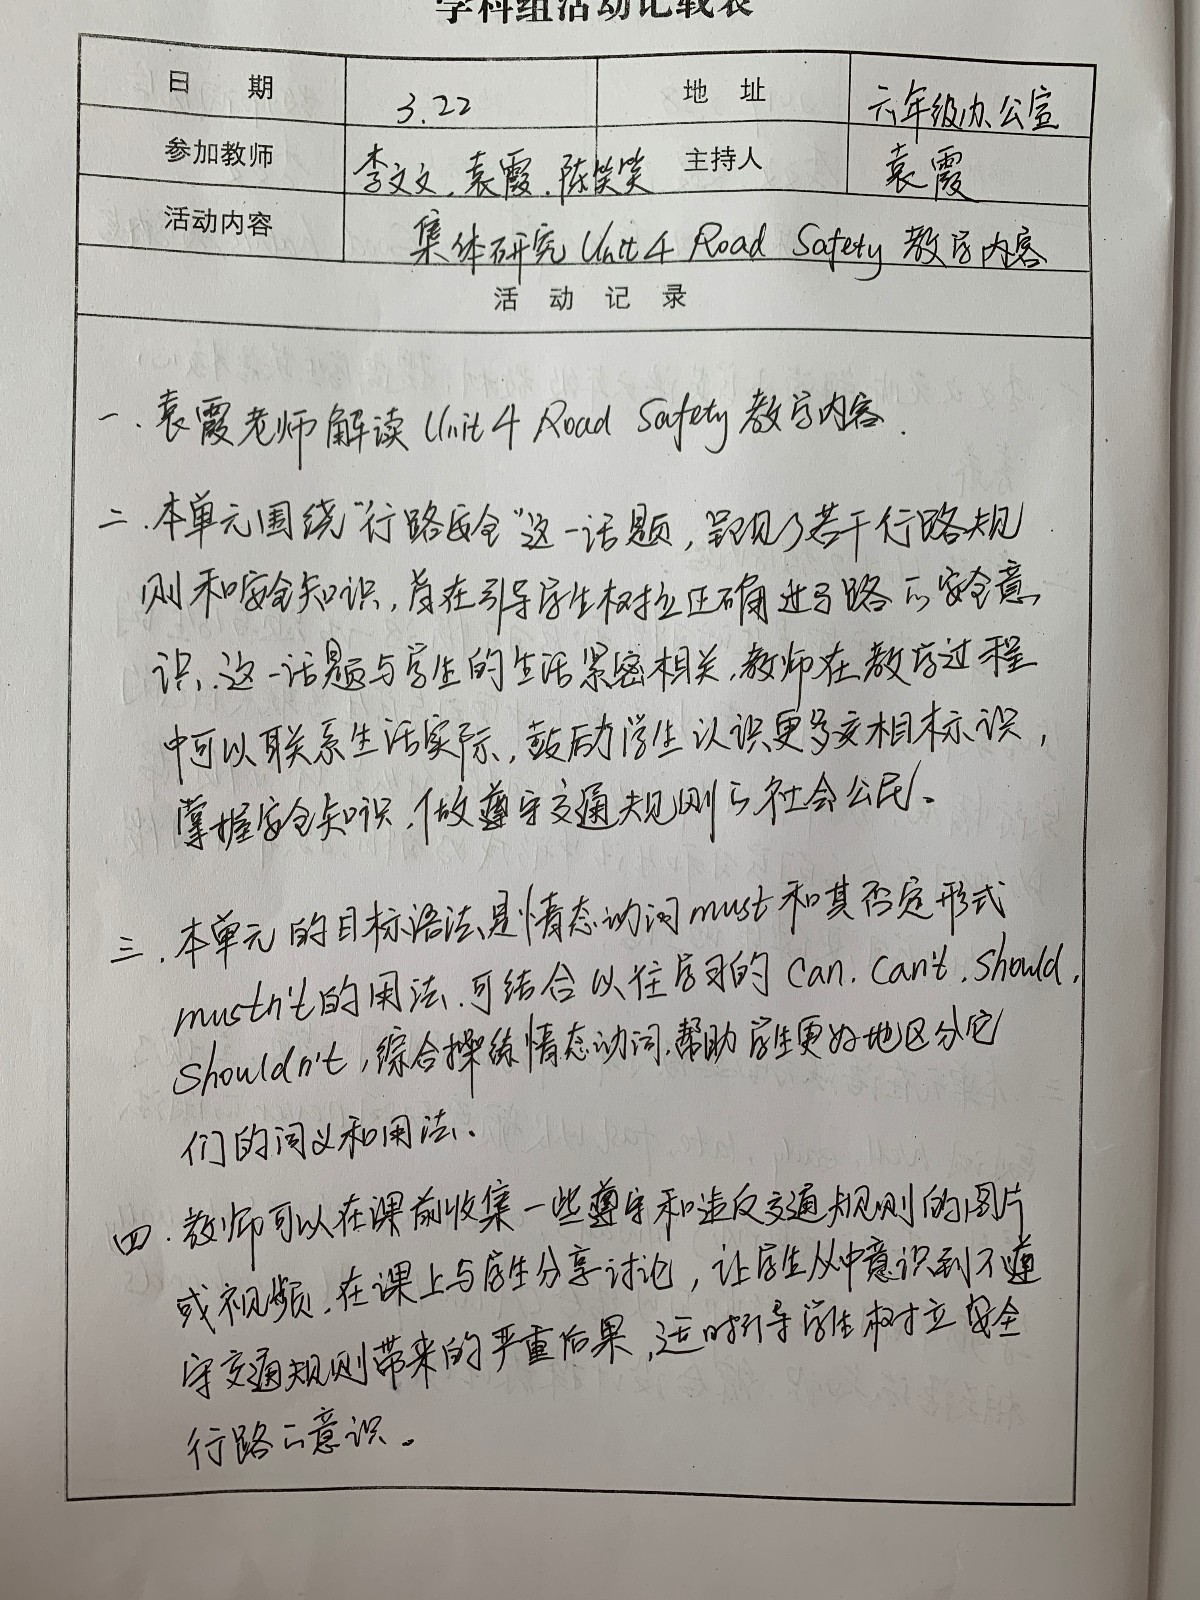 学科组活动记载表
日 期 3.22 地 址 六年级办公室
参加教师 李文文、袁霞、陈笑笑 主持人 袁霞
活动内容 集体研究Unit 4 Road Safety 教学内容
活 动 记 录
一、袁霞老师解读Unit 4 Road Safety教学内容.
二、本单元围绕"行路安全"这一话题，呈现了若干行路规
则和安全知识，旨在引导学生树立正确过马路的安全意
识、这一话题与学生的生活紧密相关、教师在教学过程
中可以联系生活实际，鼓励学生认识更多交相标识，
掌握安全知识、做遵守交通规则的社会公民。
三、本单元的目标语法是情态动词must和其否定形式
mustn't的用法、可结合以往学习的can、can't、should、
shouldn't，综合操练情态动词、帮助学生更好地区分它
们的词义和用法、
四、教师可以在课前收集一些遵守和违反交通规则的图片
或视频、在课上与学生分享讨论，让学生从中意识到不遵
守交通规则带来的严重后果、适时引导学生树立安全
行路的意识。